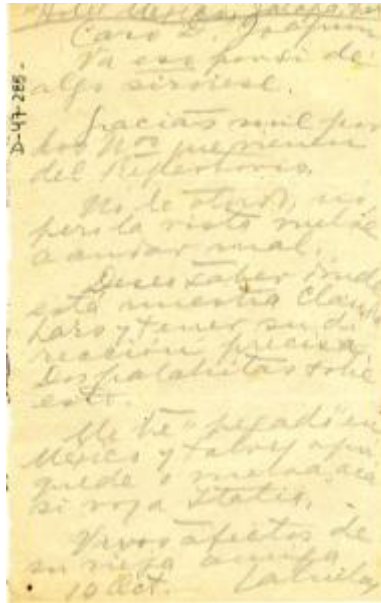 Hotel México, Jalapa, Ver.
Caro D. Joaquín
Va eso por si de
algo sirviese.
Gracias mil por
los Nos que vienen
del Repertorio.
No le olvido, no,
pero la vista vuelve
a andar mal.
Deseo saber donde
está nuestra
Lars y tener su di-
rección precisa.
Dos palabritas sobre
esto.
México y tal vez aquí
quede o vuelva acá
si voy a Italia.
Vivos afectos de
su vieja amiga
10 Oct.
D-47-285-